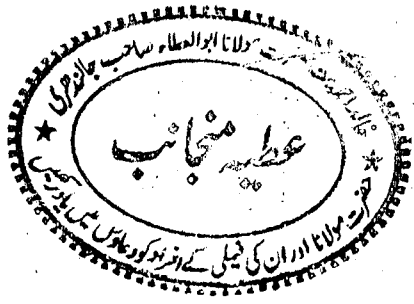 خالد احمدیت حضرت مولانا ابوالعطاء صاحب جالندھری
عطیہ منجانب
حضرت مولانا اور ان کی فیملی کے افراد کو دعاؤں میں یاد رکھیں